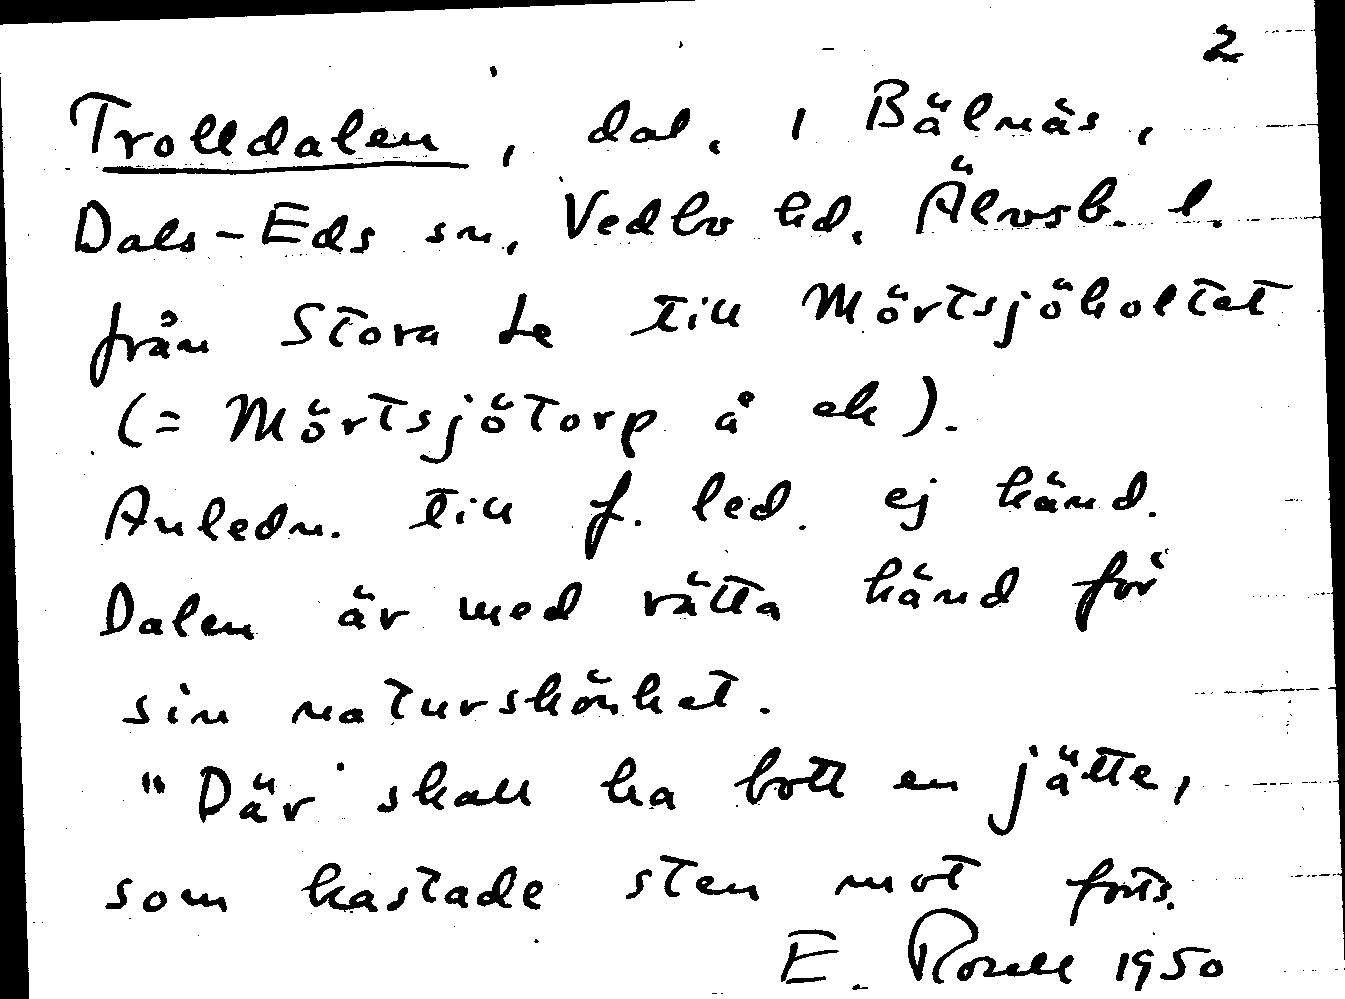 2
Trolldalen, dal, i Bälnäs,
Dals-Eds sn, Vedbo hd, Älvsb. l.
från Stora Le till Mörtsjöholtet
(= Mörtsjötorp å ek).
Anledn. till f. led. ej känd.
Dalen är med rätta känd för
sin naturskönhet.
"Där skall ha bott en jätte,
som kastade sten mot forts.
E. Rosell 1950